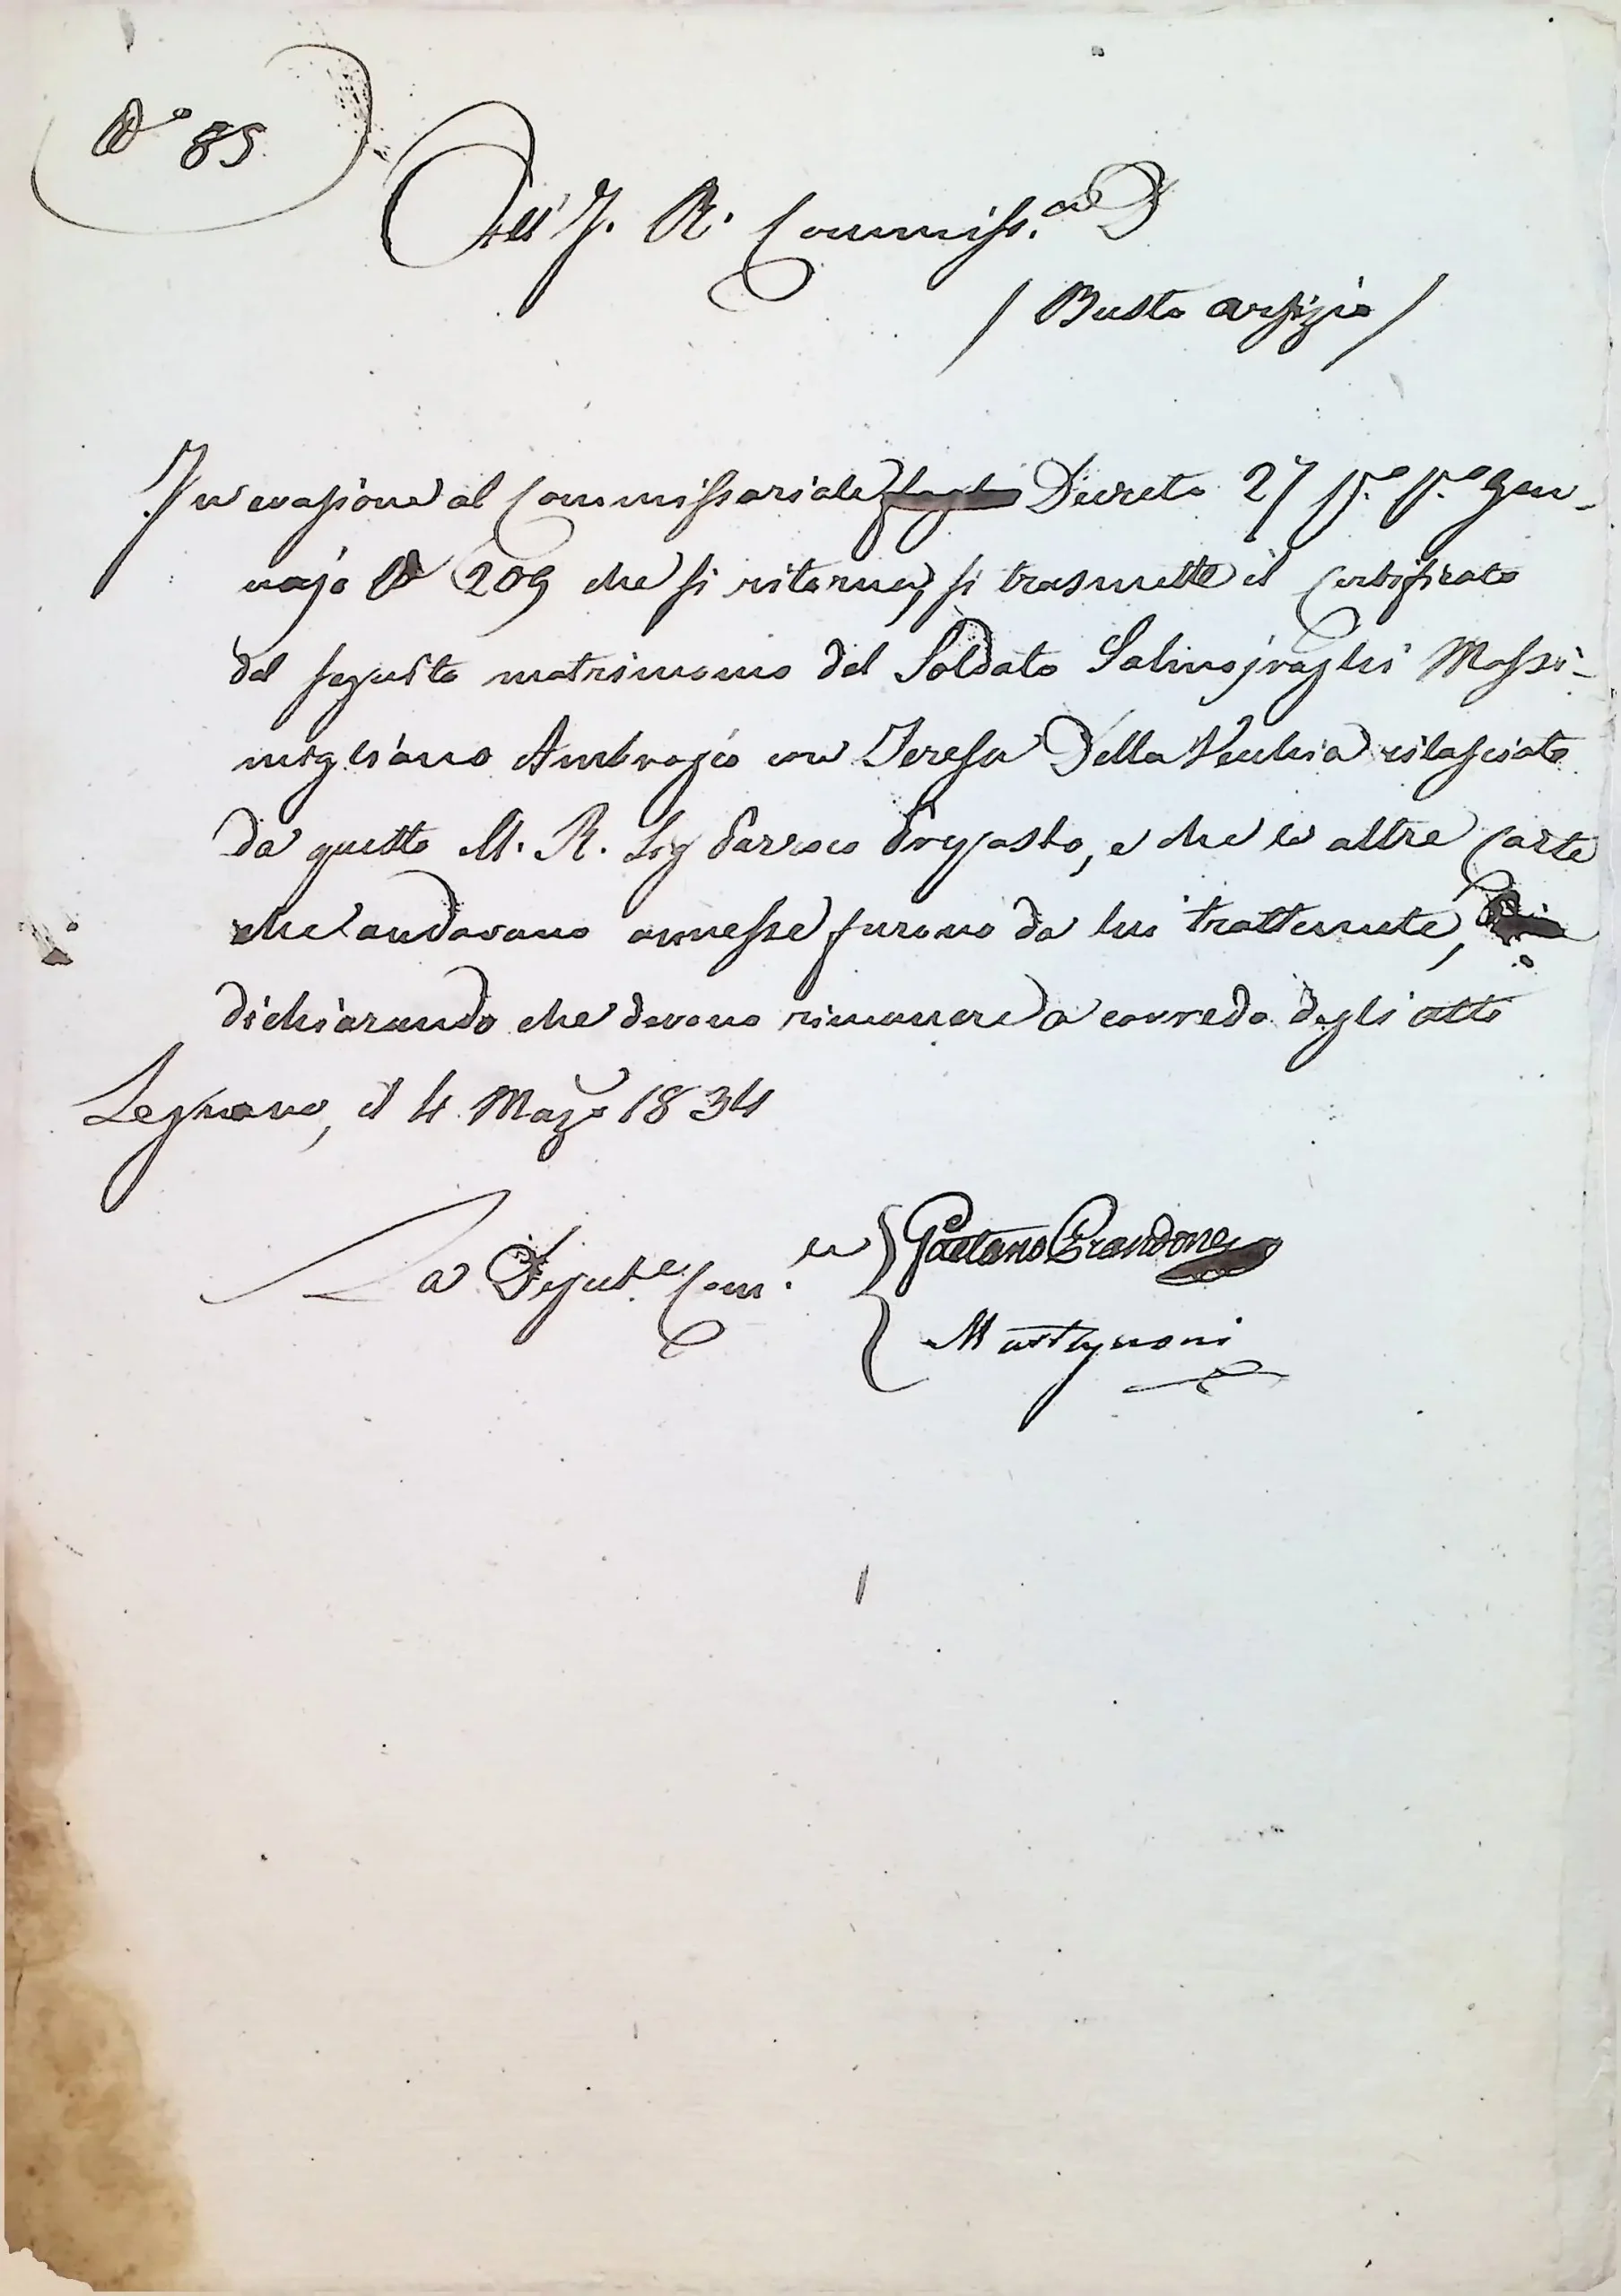 N° 85
All' I. R. Commiss.°
/ Busto Arsizio /
In evasione al Commissariale Decreto 27 p.° p.° Gen-
najo N 209 che si ritorna, si trasmette il Certificato
del seguito matrimonio del Soldato Salmojraghi Massi-
migliano Ambrogio con Teresa Della Vecchia rilasciato
da questo M. R. Sig Parroco Proposto, e che le altre carte
che andavano annesse furono da lui trattenute,
dichiarando che devono rimanere a corredo degli atti
Legnano, il 4 Mazo 1834
La Deput.e Com.
Gaetano Brandone
Martignoni